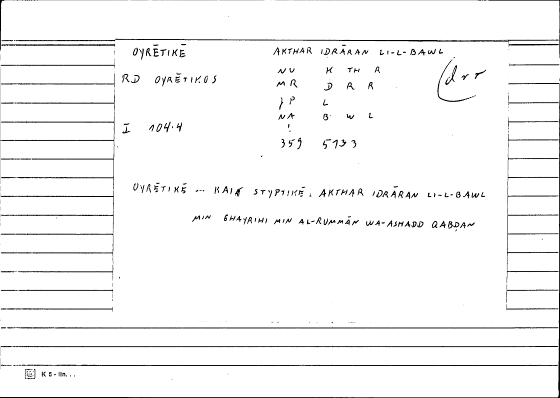 OYRĒTIKĒ AKTHAR IDRĀRAN LI-L-BAWL
NV K TH R (drr
RD OYRĒTIKOS MR D R R
P L
NA B W L
I 104.4 !
359
OYRĒTIKĒ ... KAI STYPTIKĒ. AKTHAR IDRĀRAN LI-L-BAWL
MIN GHAYRIHI MIN AL-RUMMĀN WA-ASHADD QABḌAN
K 5 - lin. . .